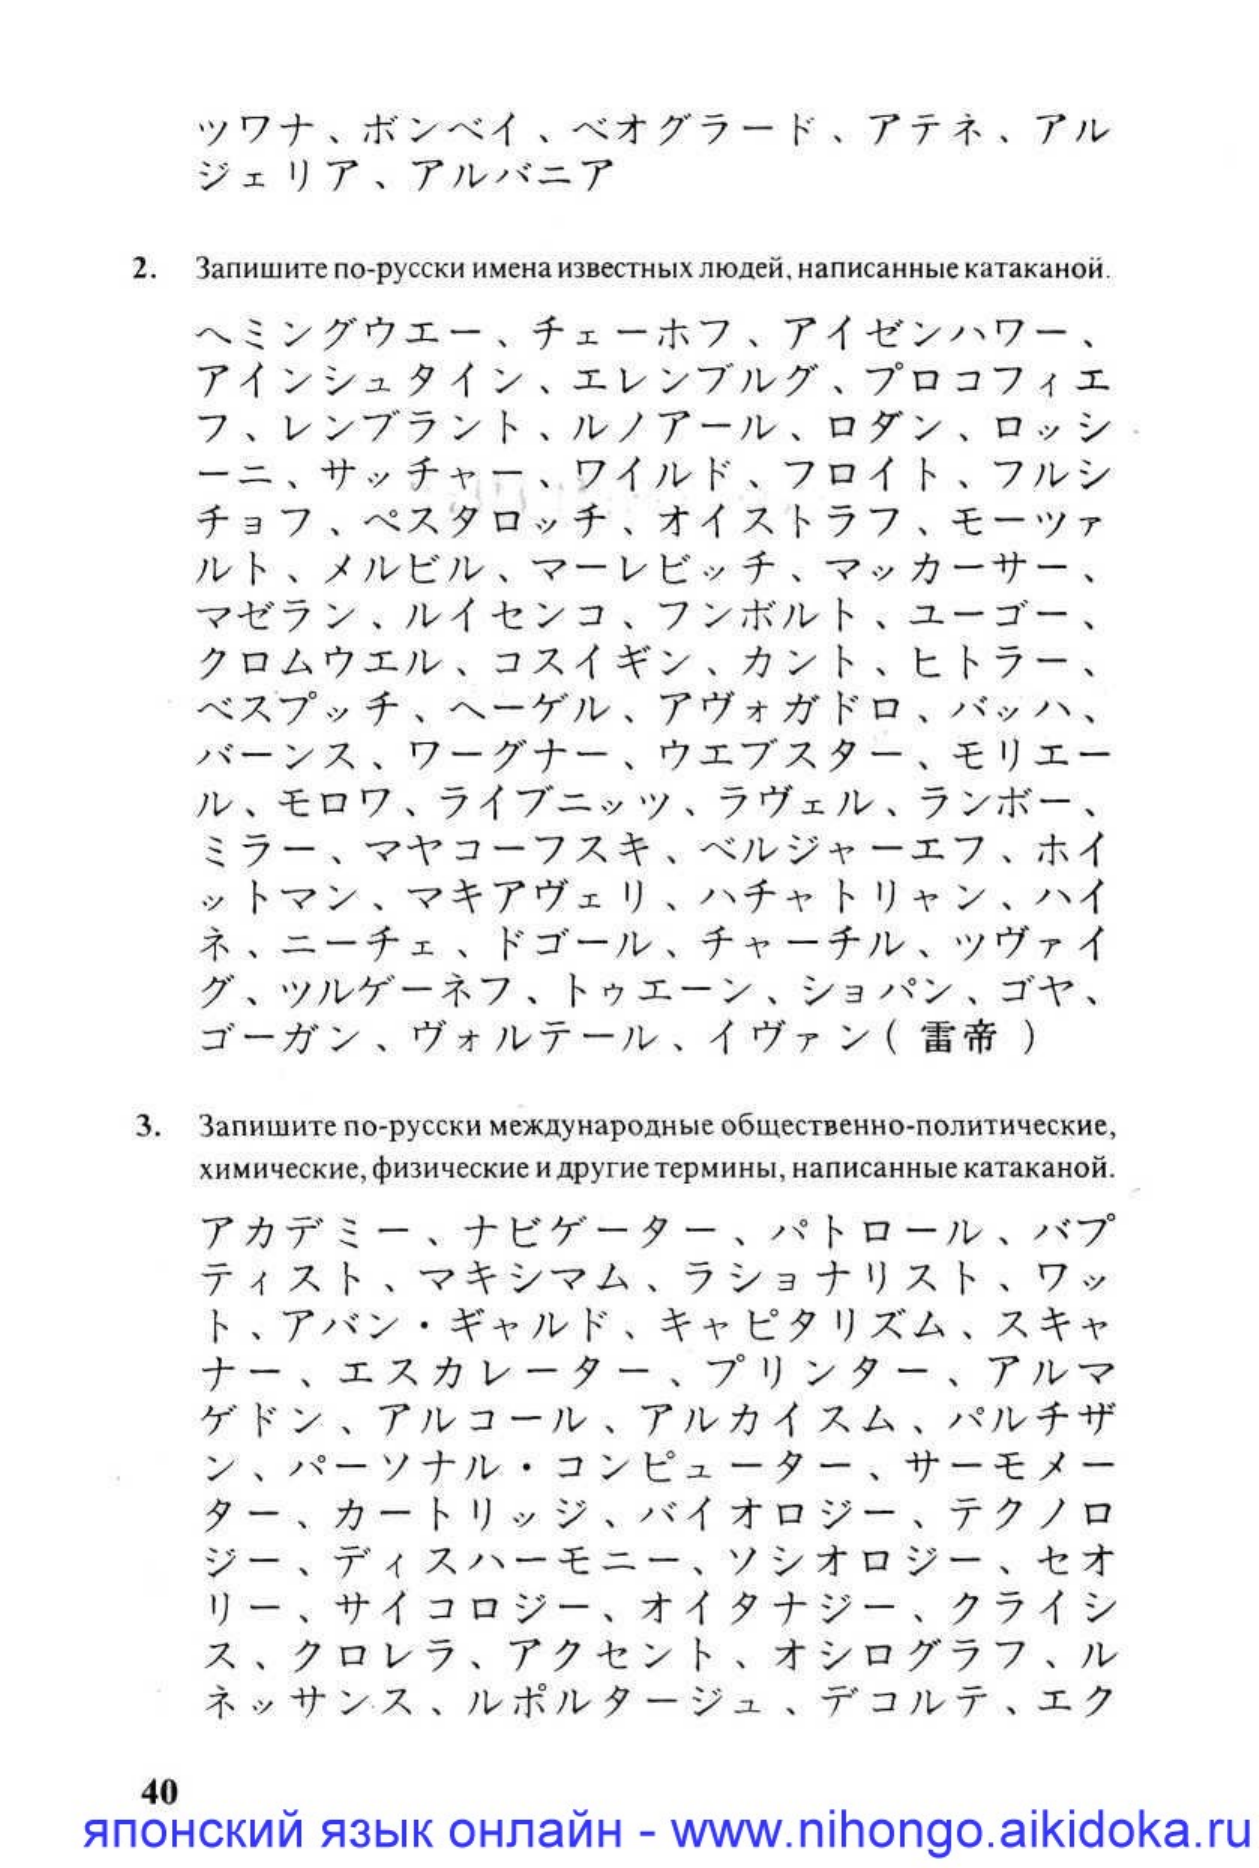 ツワナ、ボンベイ、ベオグラード、アテネ、アル
ジェリア、アルバニア
2. Запишите по-русски имена известных людей, написанные катаканой.
ヘミングウエー、チェーホフ、アイゼンハワー、
アインシュタイン、エレンブルグ、プロコフィエ
フ、レンブラント、ルノアール、ロダン、ロッシ
ーニ、サッチャー、ワイルド、フロイト、フルシ
チョフ、ペスタロッチ、オイストラフ、モーツァ
ルト、メルビル、マーレビッチ、マッカーサー、
マゼラン、ルイセンコ、フンボルト、ユーゴー、
クロムウエル、コスイギン、カント、ヒトラー、
ベスプッチ、ヘーゲル、アヴォガドロ、バッハ、
バーンス、ワーグナー、ウエブスター、モリエー
ル、モロワ、ライブニッツ、ラヴェル、ランボー、
ミラー、マヤコーフスキ、ベルジャーエフ、ホイ
ットマン、マキアヴェリ、ハチャトリャン、ハイ
ネ、ニーチェ、ドゴール、チャーチル、ツヴァイ
グ、ツルゲーネフ、トゥエーン、ショパン、ゴヤ、
ゴーガン、ヴォルテール、イヴァン( 雷帝 )
3. Запишите по-русски международные общественно-политические,
химические, физические и другие термины, написанные катаканой.
アカデミー、ナビゲーター、パトロール、バプ
ティスト、マキシマム、ラショナリスト、ワッ
ト、アバン・ギャルド、キャピタリズム、スキャ
ナー、エスカレーター、プリンター、アルマ
ゲドン、アルコール、アルカイスム、パルチザ
ン、パーソナル・コンピューター、サーモメー
ター、カートリッジ、バイオロジー、テクノロ
ジー、ディスハーモニー、ソシオロジー、セオ
リー、サイコロジー、オイタナジー、クライシ
ス、クロレラ、アクセント、オシログラフ、ル
ネッサンス、ルポルタージュ、デコルテ、エク
40
японский язык онлайн - www.nihongo.aikidoka.ru